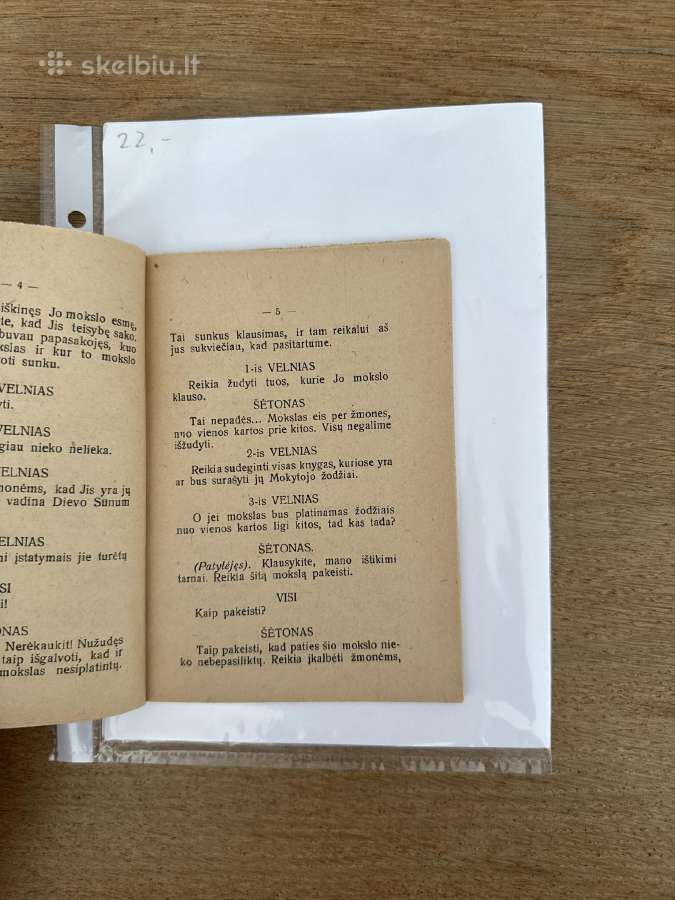 skelbiu.lt
22,-
— 4 —
iškinęs Jo mokslo esmę,
kad Jis teisybę sako.
buvau papasakojęs, kuo
ir kur to mokslo
sunku.
VELNIAS
VELNIAS
nieko nelieka.
VELNIAS
kad Jis yra jų
vadina Dievo Sūnum
VELNIAS
įstatymais jie turėtų
Nerėkaukit! Nužudęs
taip išgalvoti, kad ir
mokslas nesiplatintų.
— 5 —
Tai sunkus klausimas, ir tam reikalui aš
jus sukviečiau, kad pasitartume.
1-is VELNIAS
Reikia žudyti tuos, kurie Jo mokslo
klauso.
ŠĖTONAS
Tai nepadės... Mokslas eis per žmones,
nuo vienos kartos prie kitos. Visų negalime
išžudyti.
2-is VELNIAS
Reikia sudeginti visas knygas, kuriose yra
ar bus surašyti jų Mokytojo žodžiai.
3-is VELNIAS
O jei mokslas bus platinamas žodžiais
nuo vienos kartos ligi kitos, tad kas tada?
ŠĖTONAS.
(Patylėjęs). Klausykite, mano ištikimi
tarnai. Reikia šitą mokslą pakeisti.
VISI
Kaip pakeisti?
ŠĖTONAS
Taip pakeisti, kad paties šio mokslo nie-
ko nebepasiliktų. Reikia įkalbėti žmonėms,